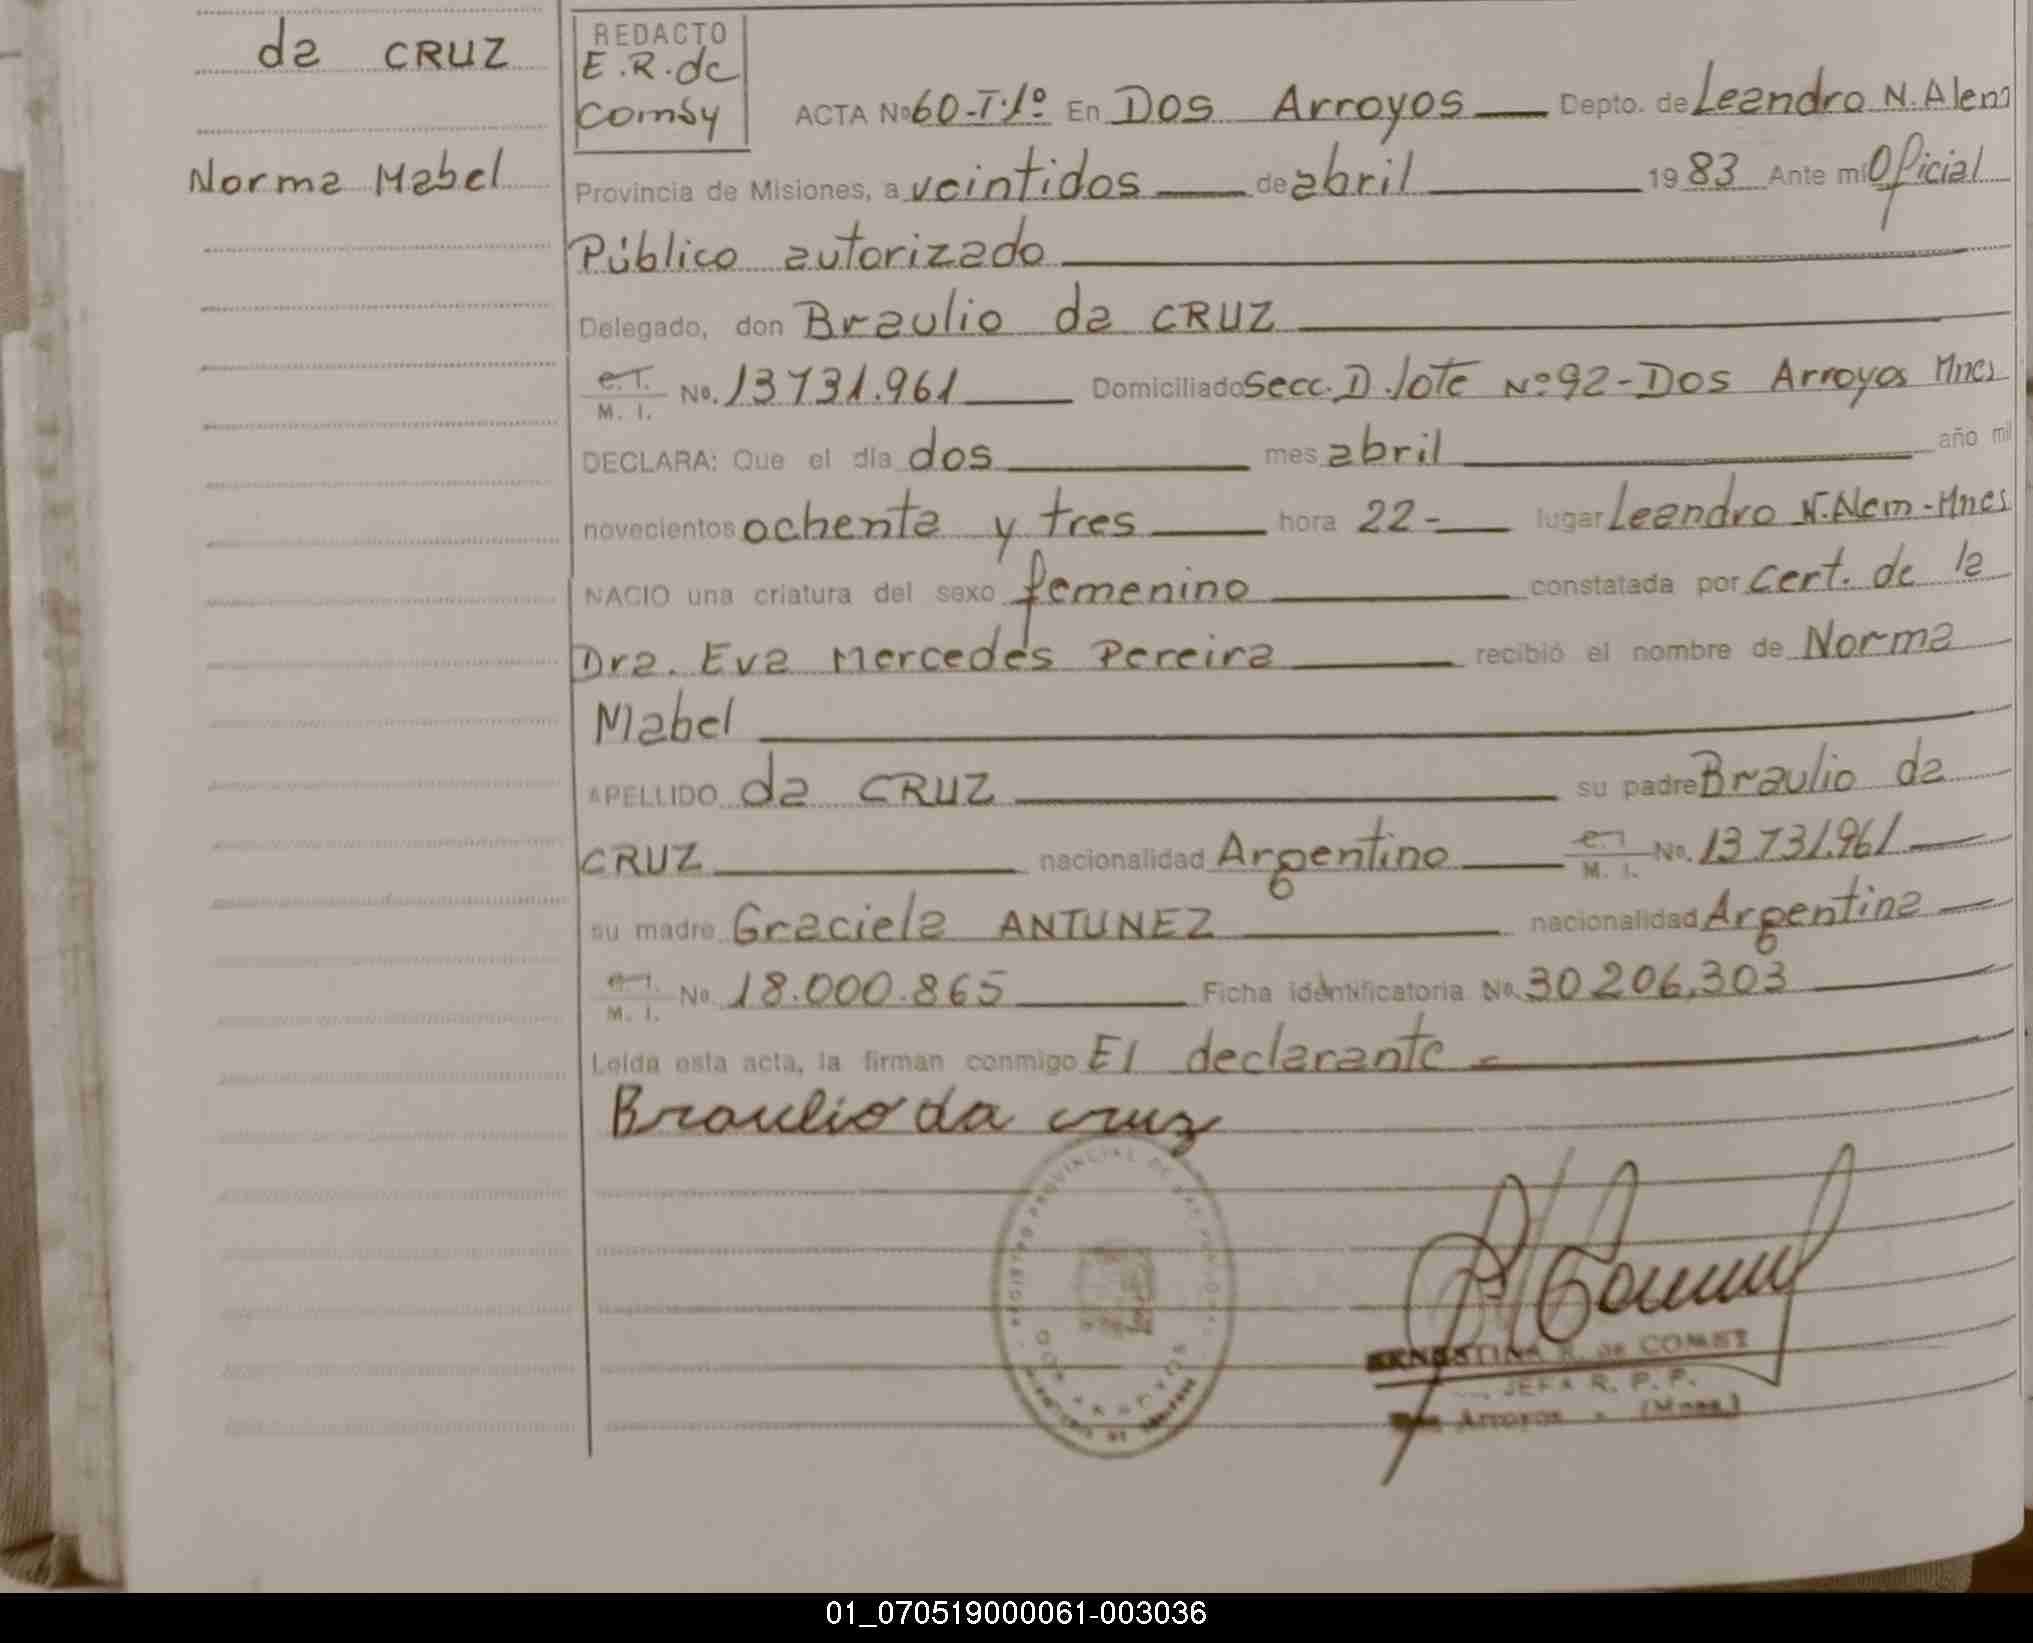 da CRUZ
Norma Mabel
REDACTO
E.R.de
Comsy
ACTA No 60-T.1º En Dos Arroyos Depto. de Leandro N. Alem
Provincia de Misiones, a veintidos de abril 1983 Ante mi Oficial
Público autorizado
Delegado, don Braulio da CRUZ
C.I. M. I. No. 13731.961 Domiciliado Secc. D. lote Nº 92-Dos Arroyos Mnes
DECLARA: Que el día dos mes abril año mil
novecientos ochenta y tres hora 22- lugar Leandro N. Alem-Mnes
NACIO una criatura del sexo femenino constatada por cert. de la
Dra. Eva Mercedes Pereira recibió el nombre de Norma
Mabel
APELLIDO da CRUZ su padre Braulio da
CRUZ nacionalidad Argentino M. I. No. 13731.961
su madre Graciela ANTUNEZ nacionalidad Argentina
M. I. No. 18.000.865 Ficha identificatoria No. 30206.303
Leida esta acta, la firman conmigo El declarante -
Braulio da cruz
REGISTRO PROVINCIAL DE LAS PERSONAS
DOS ARROYOS
ERNESTINA R. de COMSY
JEFA R. P. P.
Dos Arroyos - (Mnes)
01_070519000061-003036